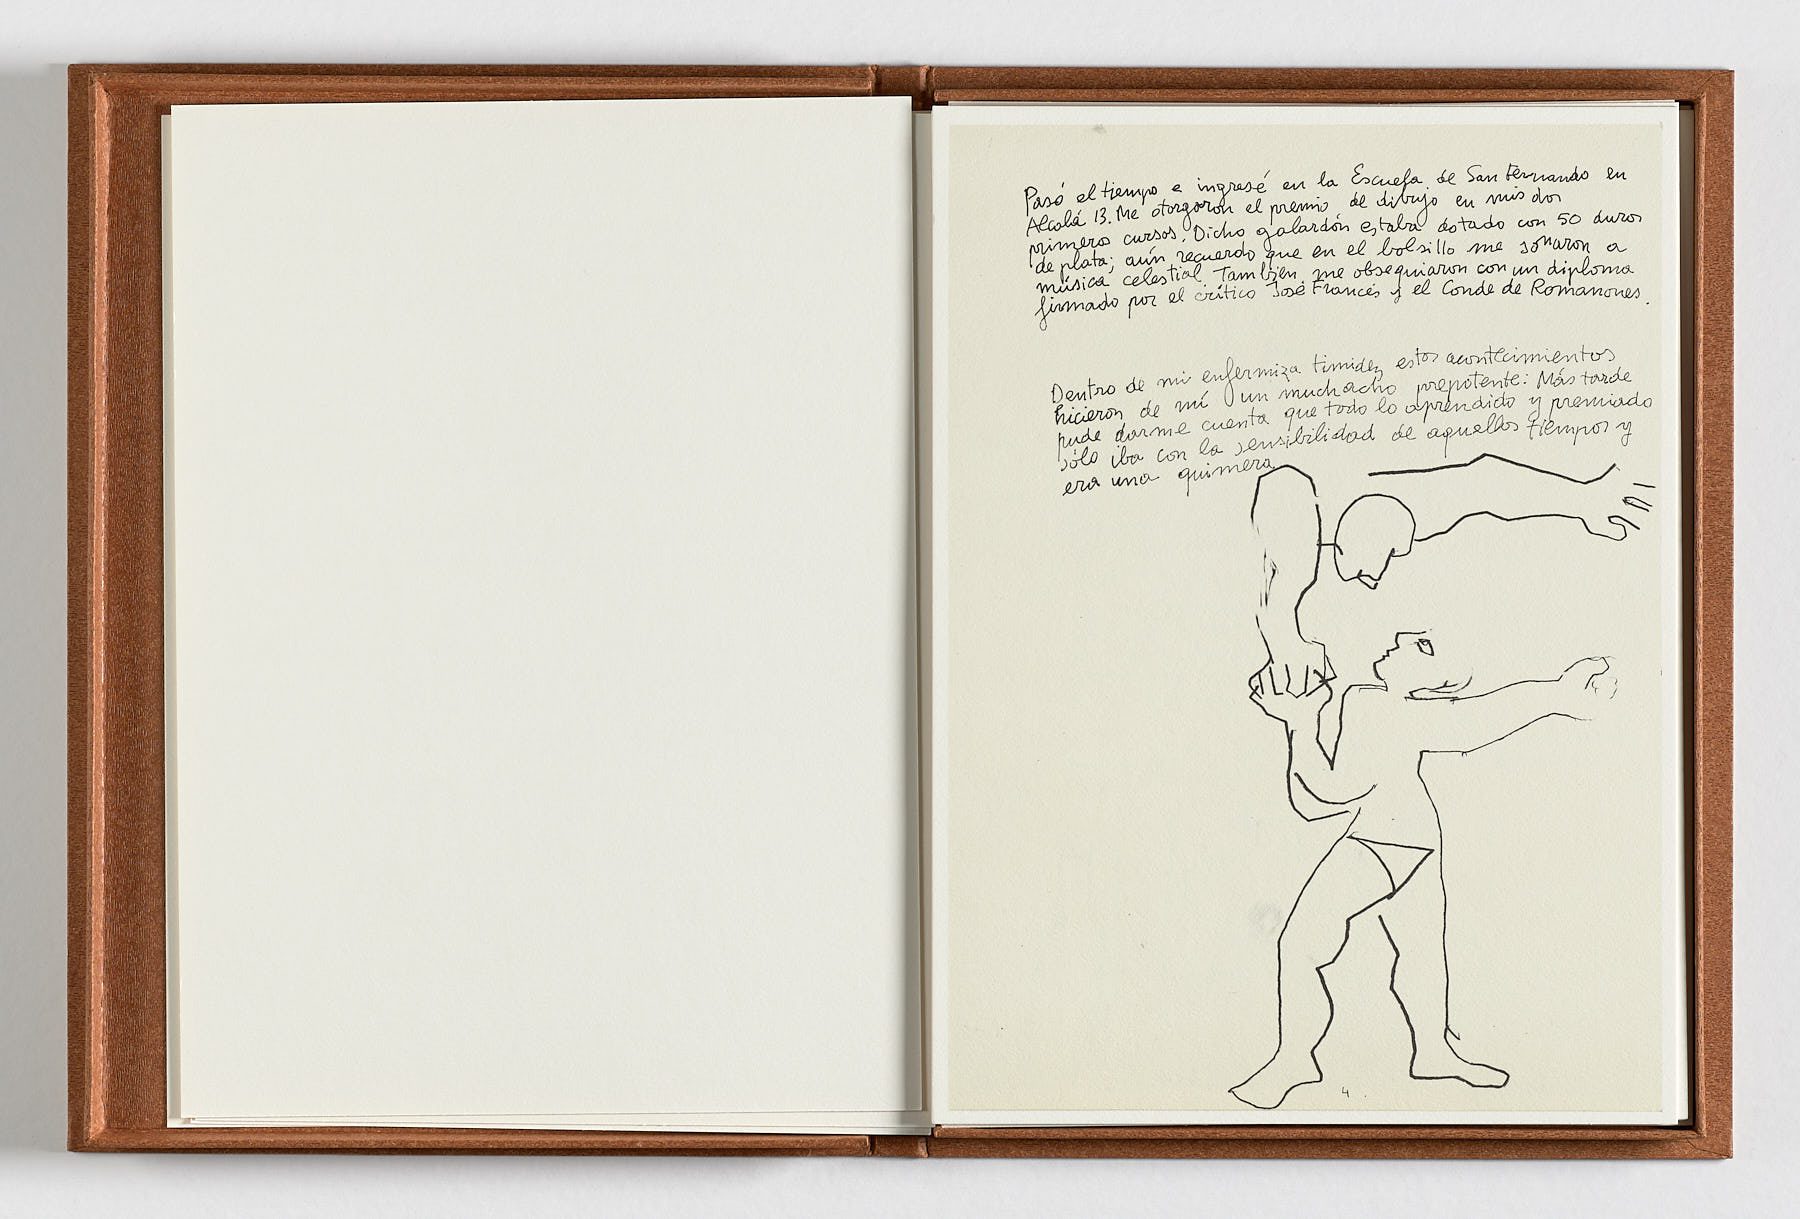 Pasó el tiempo e ingresé en la Escuela de San Fernando en
Alcalá 13. Me otorgaron el premio de dibujo en mis dos
primeros cursos. Dicho galardón estaba dotado con 50 duros
de plata; aún recuerdo que en el bolsillo me sonaron a
música celestial. También me obsequiaron con un diploma
firmado por el crítico José Francés y el Conde de Romanones.
Dentro de mi enfermiza timidez estos acontecimientos
hicieron de mí un muchacho prepotente: Más tarde
pude darme cuenta que todo lo aprendido y premiado
sólo iba con la sensibilidad de aquellos tiempos y
era una quimera
4